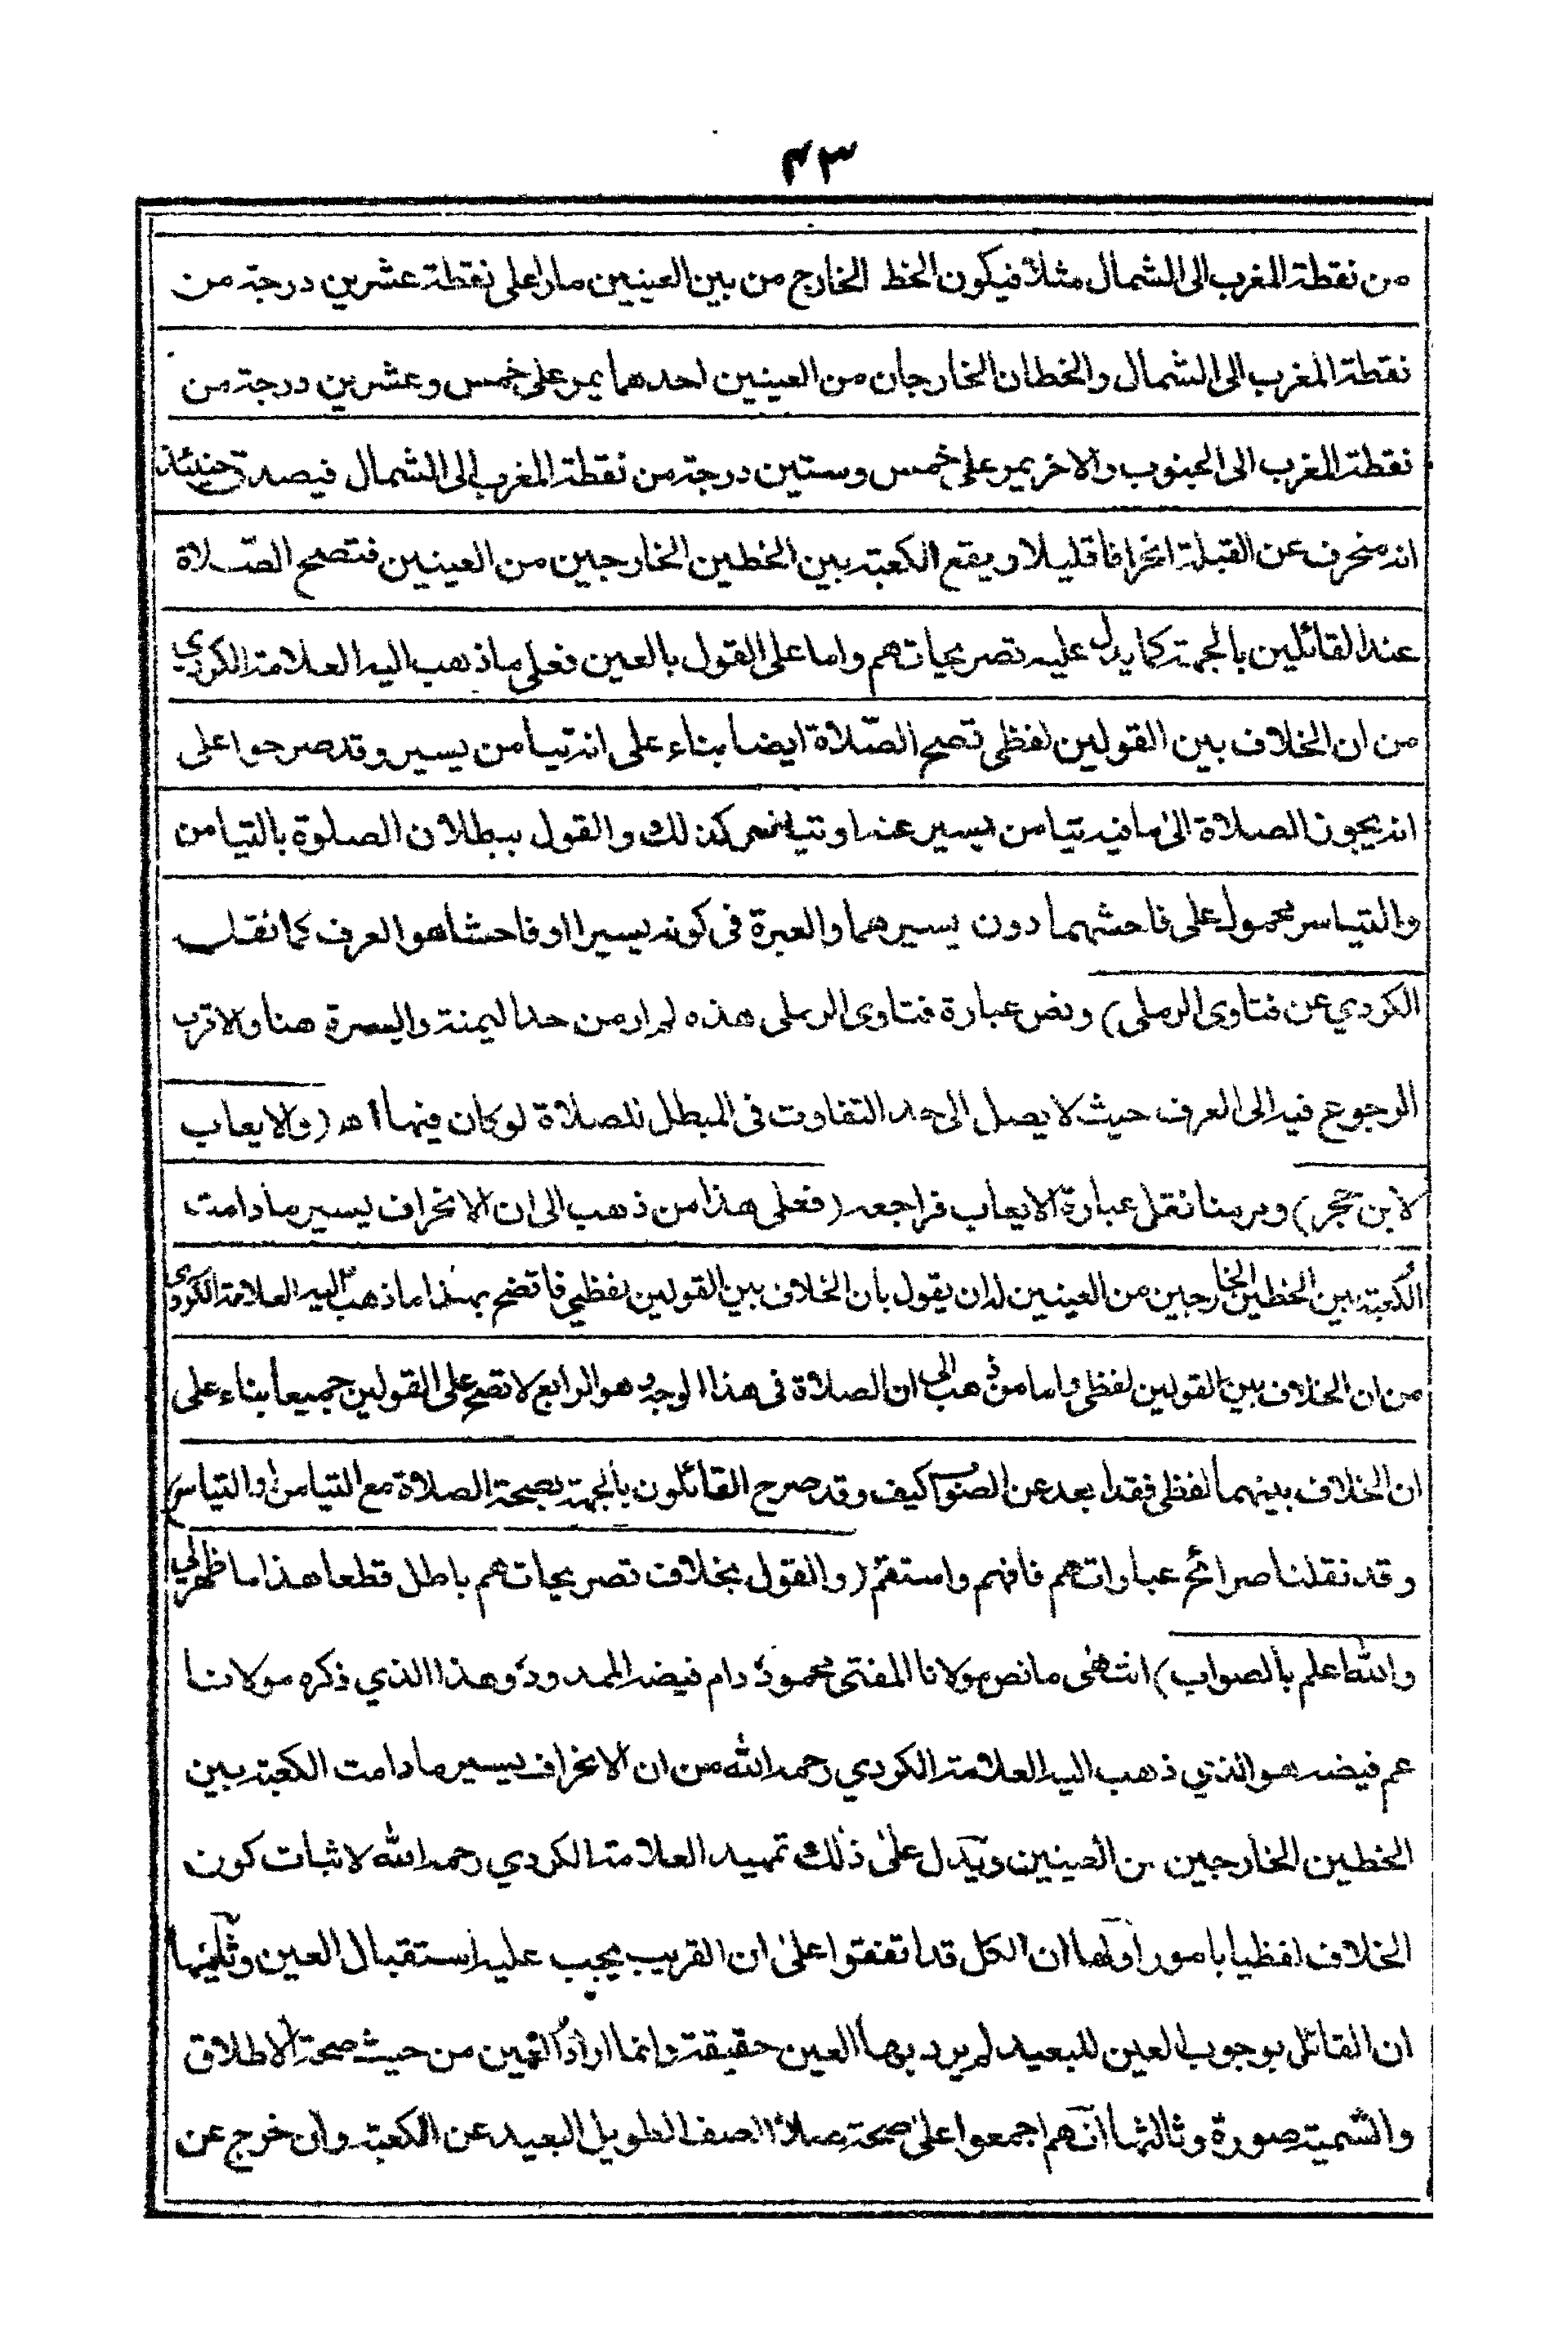 ٤٣
من نقطة المغرب الى الشمال مثلا فيكون الخط الخارج من بين العينين مارا على نقطة عشرين درجة من
نقطة المغرب الى الشمال والخطان الخارجان من العينين احدهما يمر على خمس وعشرين درجة من
نقطة المغرب الى الجنوب والاخر يمر على خمس وستين درجة من نقطة المغرب الى الشمال فيصدق حينئذ
انه منحرف عن القبلة انحرافا قليلا ويقع الكعبة بين الخطين الخارجين من العينين فتصح الصّلاة
عند القائلين بالجهة كما يدل عليه تصريحاتهم واما على القول بالعين فعلى ما ذهب اليه العلامة الكردي
من ان الخلاف بين القولين لفظي تصح الصّلاة ايضا بناء على انه تيامن يسير وقد صرحوا على
انه يجوز الصلاة الى ما فيه تيامن يسير عنه او تياسر كذلك والقول ببطلان الصلوة بالتيامن
والتياسر محمول على فاحشهما دون يسيرهما والعبرة في كونه يسيرا او فاحشا هو العرف كما نقله
الكردي عن فتاوى الرملي) ونص عبارة فتاوى الرملي هذه لم ار من حد اليمنة واليسرة هنا والاقرب
الرجوع فيه الى العرف حيث لا يصل الى حد التفاوت في المبطل للصلاة لو كان فيها أ هـ (والايعاب
لابن حجر) ومر منا نقل عبارة الايعاب فراجعه (فعلى هذا من ذهب الى ان الانحراف يسير ما دامت
الكعبة بين الخطين الخارجين من العينين له ان يقول بأن الخلاف بين القولين لفظي فاتضح بهذا ما ذهب اليه العلامة الكردي
من ان الخلاف بين القولين لفظي واما من ذهب الى ان الصلاة في هذا الوجه وهو الرابع لا تصح على القولين جميعا بناء على
ان الخلاف بينهما لفظي فقد ابعد عن الصواب كيف وقد صرح القائلون بالجهة بصحة الصلاة مع التيامن او التياسر)
وقد نقلنا صرائح عباراتهم فافهم واستقم (والقول بخلاف تصريحاتهم باطل قطعا هذا ما ظهر لي
والله اعلم بالصواب) انتهى ما نص مولانا المفتى محمود دام فيضه الممدود وهذا الذي ذكره مولانا
عم فيضه هو الذي ذهب اليه العلامة الكردي رحمه الله من ان الانحراف يسير ما دامت الكعبة بين
الخطين الخارجين من العينين ويدل على ذلك تمهيد العلامة الكردي رحمه الله لاثبات كون
الخلاف لفظيا بامور اولها ان الكل قد اتفقوا على ان القريب يجب عليه استقبال العين وثانيها
ان القائل بوجوب العين للبعيد لم يرد بها العين حقيقة وانما اراد العين من حيث صحة الاطلاق
والتسمية صورة وثالثها انهم اجمعوا على صحة صلاة الصف الطويل البعيد عن الكعبة وان خرج عن